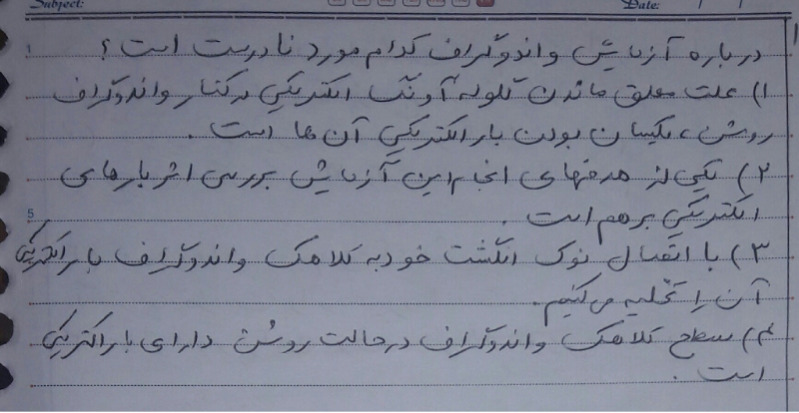 Subject:
Date: / /
درباره آزمایش واندوگراف کدام مورد نادرست است؟
۱) علت معلق ماندن گلوله آونگ الکتریکی در کنار واندوگراف
روشن، یکسان بودن بار الکتریکی آن ها است.
۲) یکی از هدفهای انجام این آزمایش بررسی اثر بارهای
الکتریکی بر هم است.
5
۳) با اتصال نوک انگشت خود به کلاهک واندوگراف بار الکتریکی
آن را تخلیه می کنیم.
۴) سطح کلاهک واندوگراف در حالت روشن دارای بار الکتریکی
است.